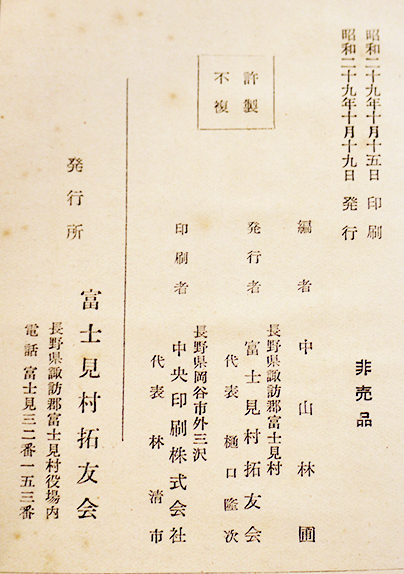 昭和二十九年十月十五日 印刷
昭和二十九年十月十九日 発行
非売品
不許
複製
編者 中山林圃
長野県諏訪郡富士見村
発行者 富士見村拓友会
代表 樋口隆次
長野県岡谷市外三沢
印刷者 中央印刷株式会社
代表 林清市
発行所 富士見村拓友会
長野県諏訪郡富士見村役場内
電話 富士見三二番一五三番